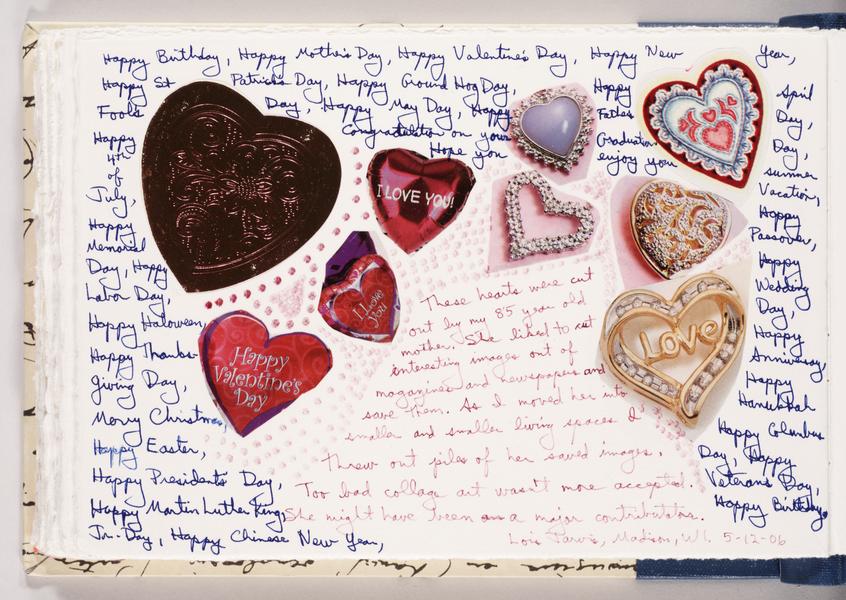 Happy Birthday, Happy Mother's Day, Happy Valentine's Day, Happy New Year,
Happy St Patrick's Day, Happy Ground Hog Day, Happy April
Fools Day, Happy May Day, Happy Fathers Day,
Congradulation on your Graduation Day,
Hope you enjoy your summer
Vacation,
Happy
4th
of
July,
Happy
Memorial
Day, Happy
Labor Day,
Happy Haloween,
Happy Thanks-
giving Day,
Merry Christmas,
Happy Easter,
Happy Presidents Day,
Happy Martin Luther King
Jr. Day, Happy Chinese New Year,
Happy
Passover,
Happy
Wedding
Day,
Happy
Anniversary,
Happy
Hanukkah
Happy Columbus
Day, Happy
Veterans Day,
Happy Birthday.
I LOVE YOU!
I Love
You
Happy
Valentine's
Day
Love
These hearts were cut
out by my 85 year old
mother. She liked to cut
interesting images out of
magazines and newspapers and
save them. As I moved her into
smaller and smaller living spaces I
threw out piles of her saved images.
Too bad collage art wasn't more accepted.
She might have been a major contributor.
Lois Parvis, Madison, WI. 5-12-06